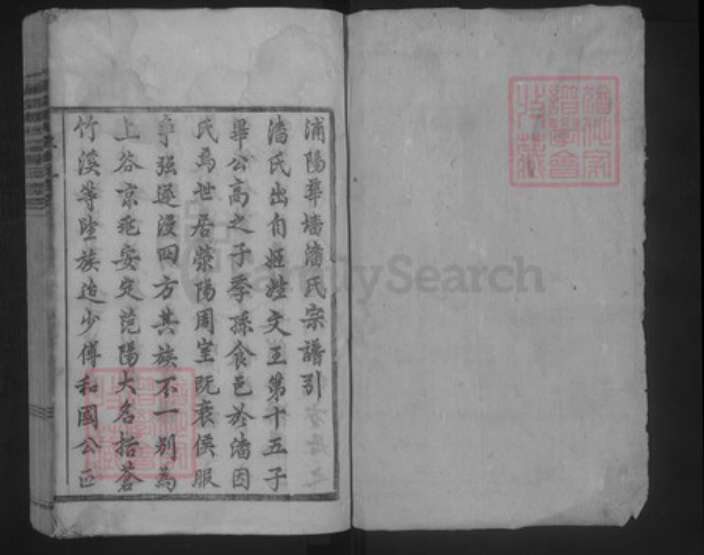 浦陽華墻潘氏宗譜引
潘氏出自姬姓文王第十五子
畢公高之子季孫食邑於潘因
氏焉世居滎陽周室既衰侯服
爭强遂浸四方其族不一別為
上谷京兆安定范陽大名括蒼
竹溪等陛族迨少傅和國公臣
FamilySearch